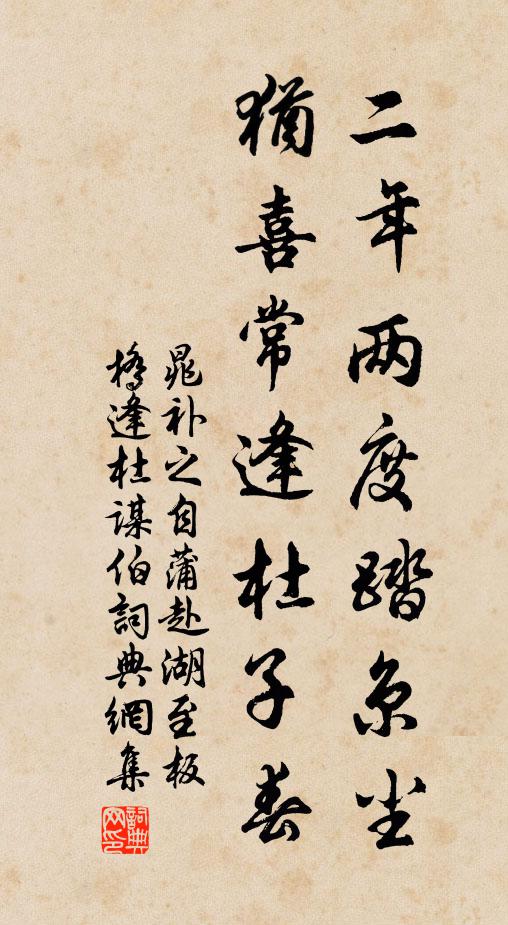 二年两度踏京尘
犹喜常逢杜子春
晁补之自蒲赴湖至板
桥逢杜谋伯词典網集
词典网印